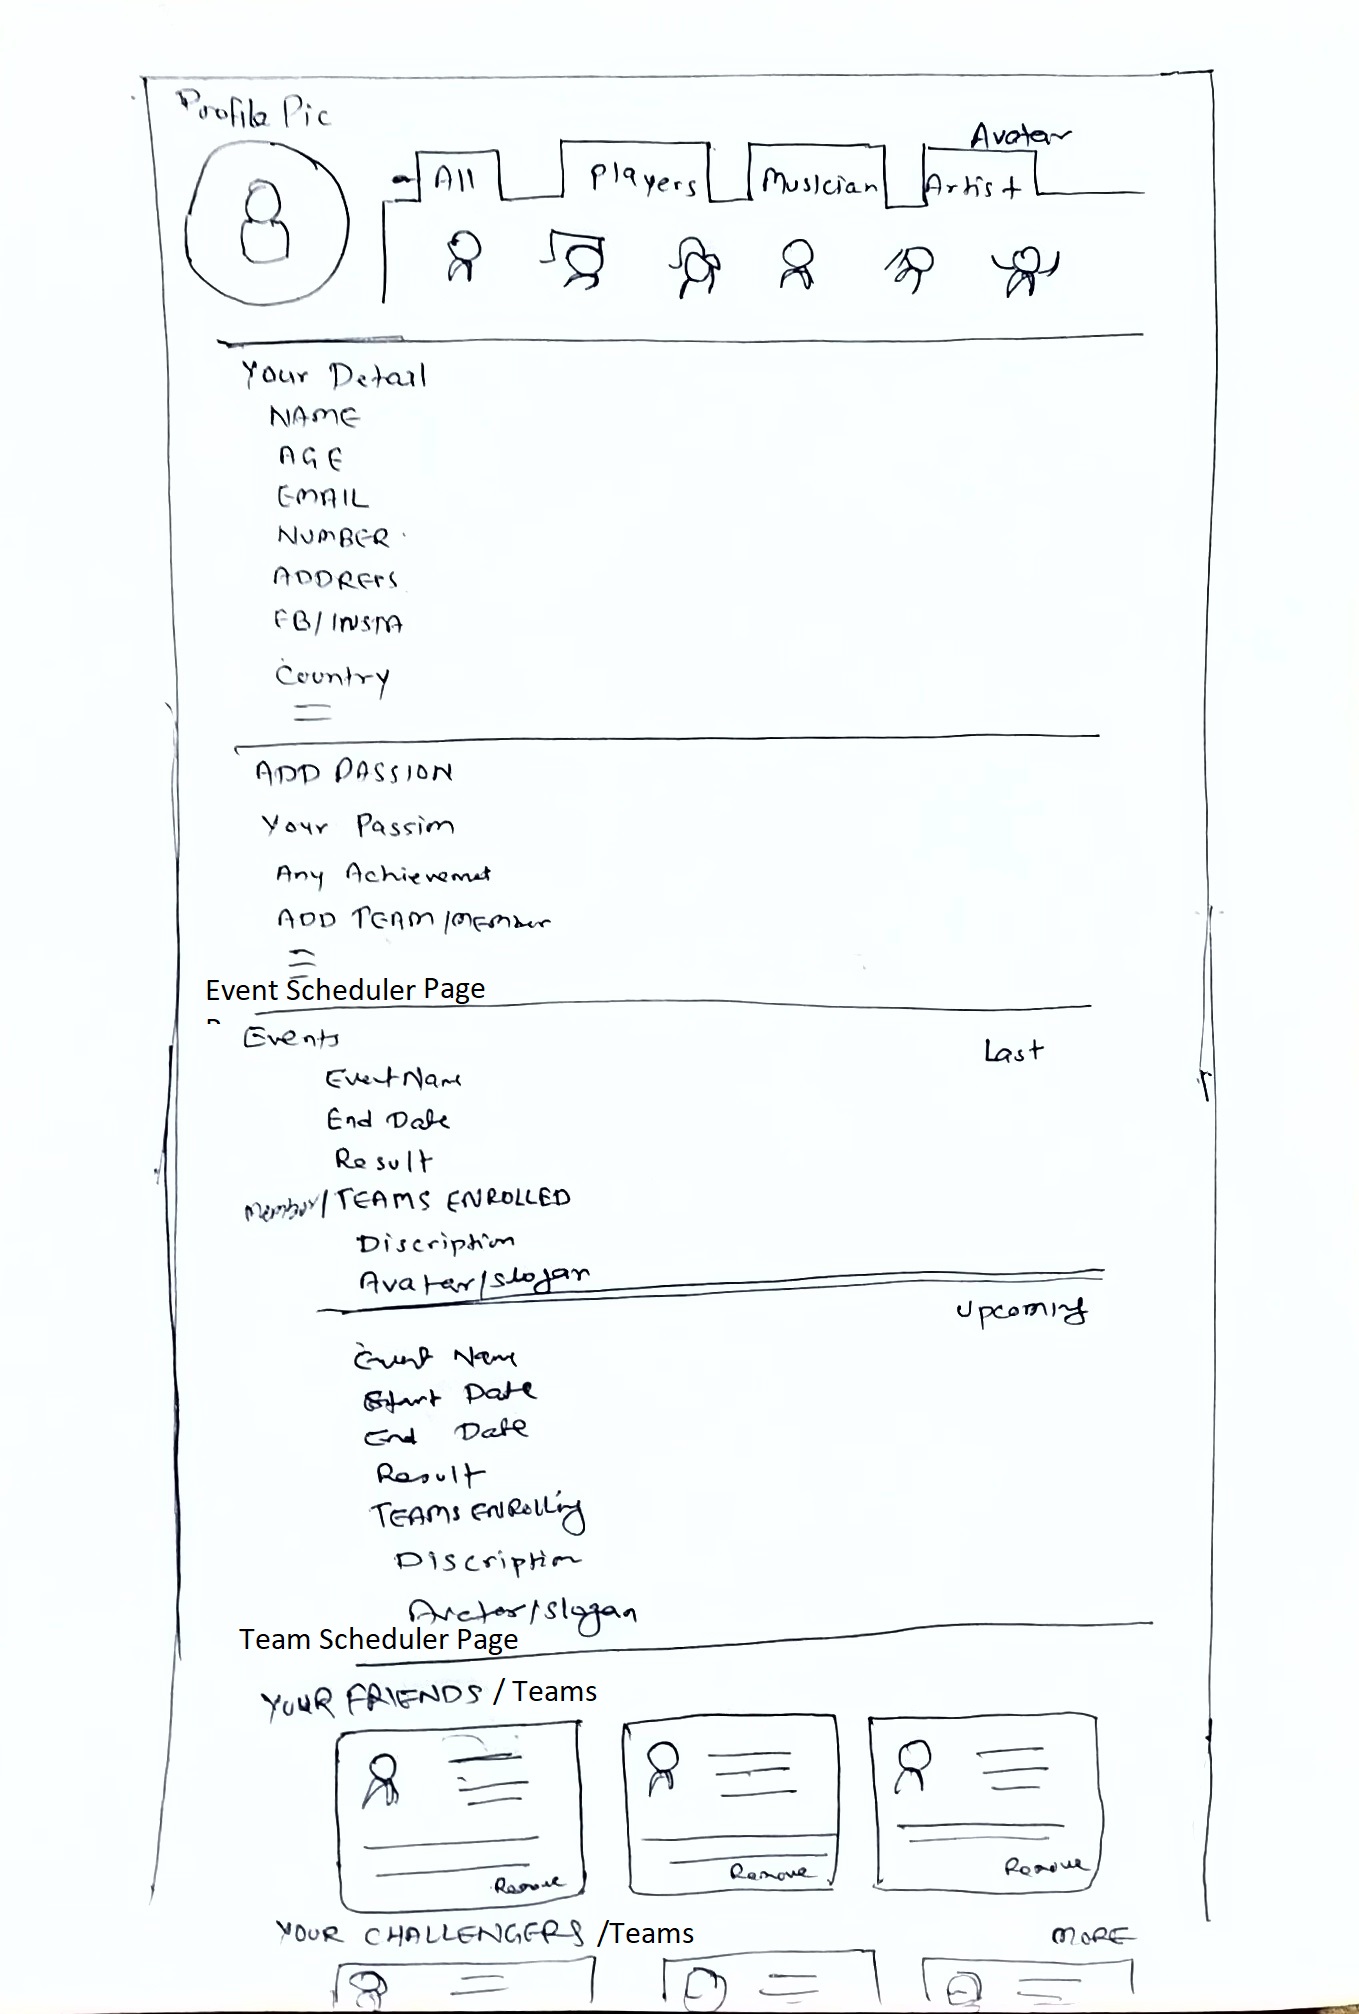 Profile Pic
Avatar
All Players Musician Artist
Your Detail
NAME
AGE
EMAIL
NUMBER
ADDRESS
FB/INSTA
Country
ADD PASSION
Your Passion
Any Achievemet
ADD TEAM/MEMber
Event Scheduler Page
Events
Last
Event Name
End Date
Result
Member/TEAMS ENROLLED
Discription
Avatar/slogan
Upcoming
Event Name
Start Date
End Date
Result
TEAMS ENROLLing
Discription
Avatar/slogan
Team Scheduler Page
YOUR FRIENDS / Teams
Remove Remove Remove
YOUR CHALLENGERS /Teams MORE